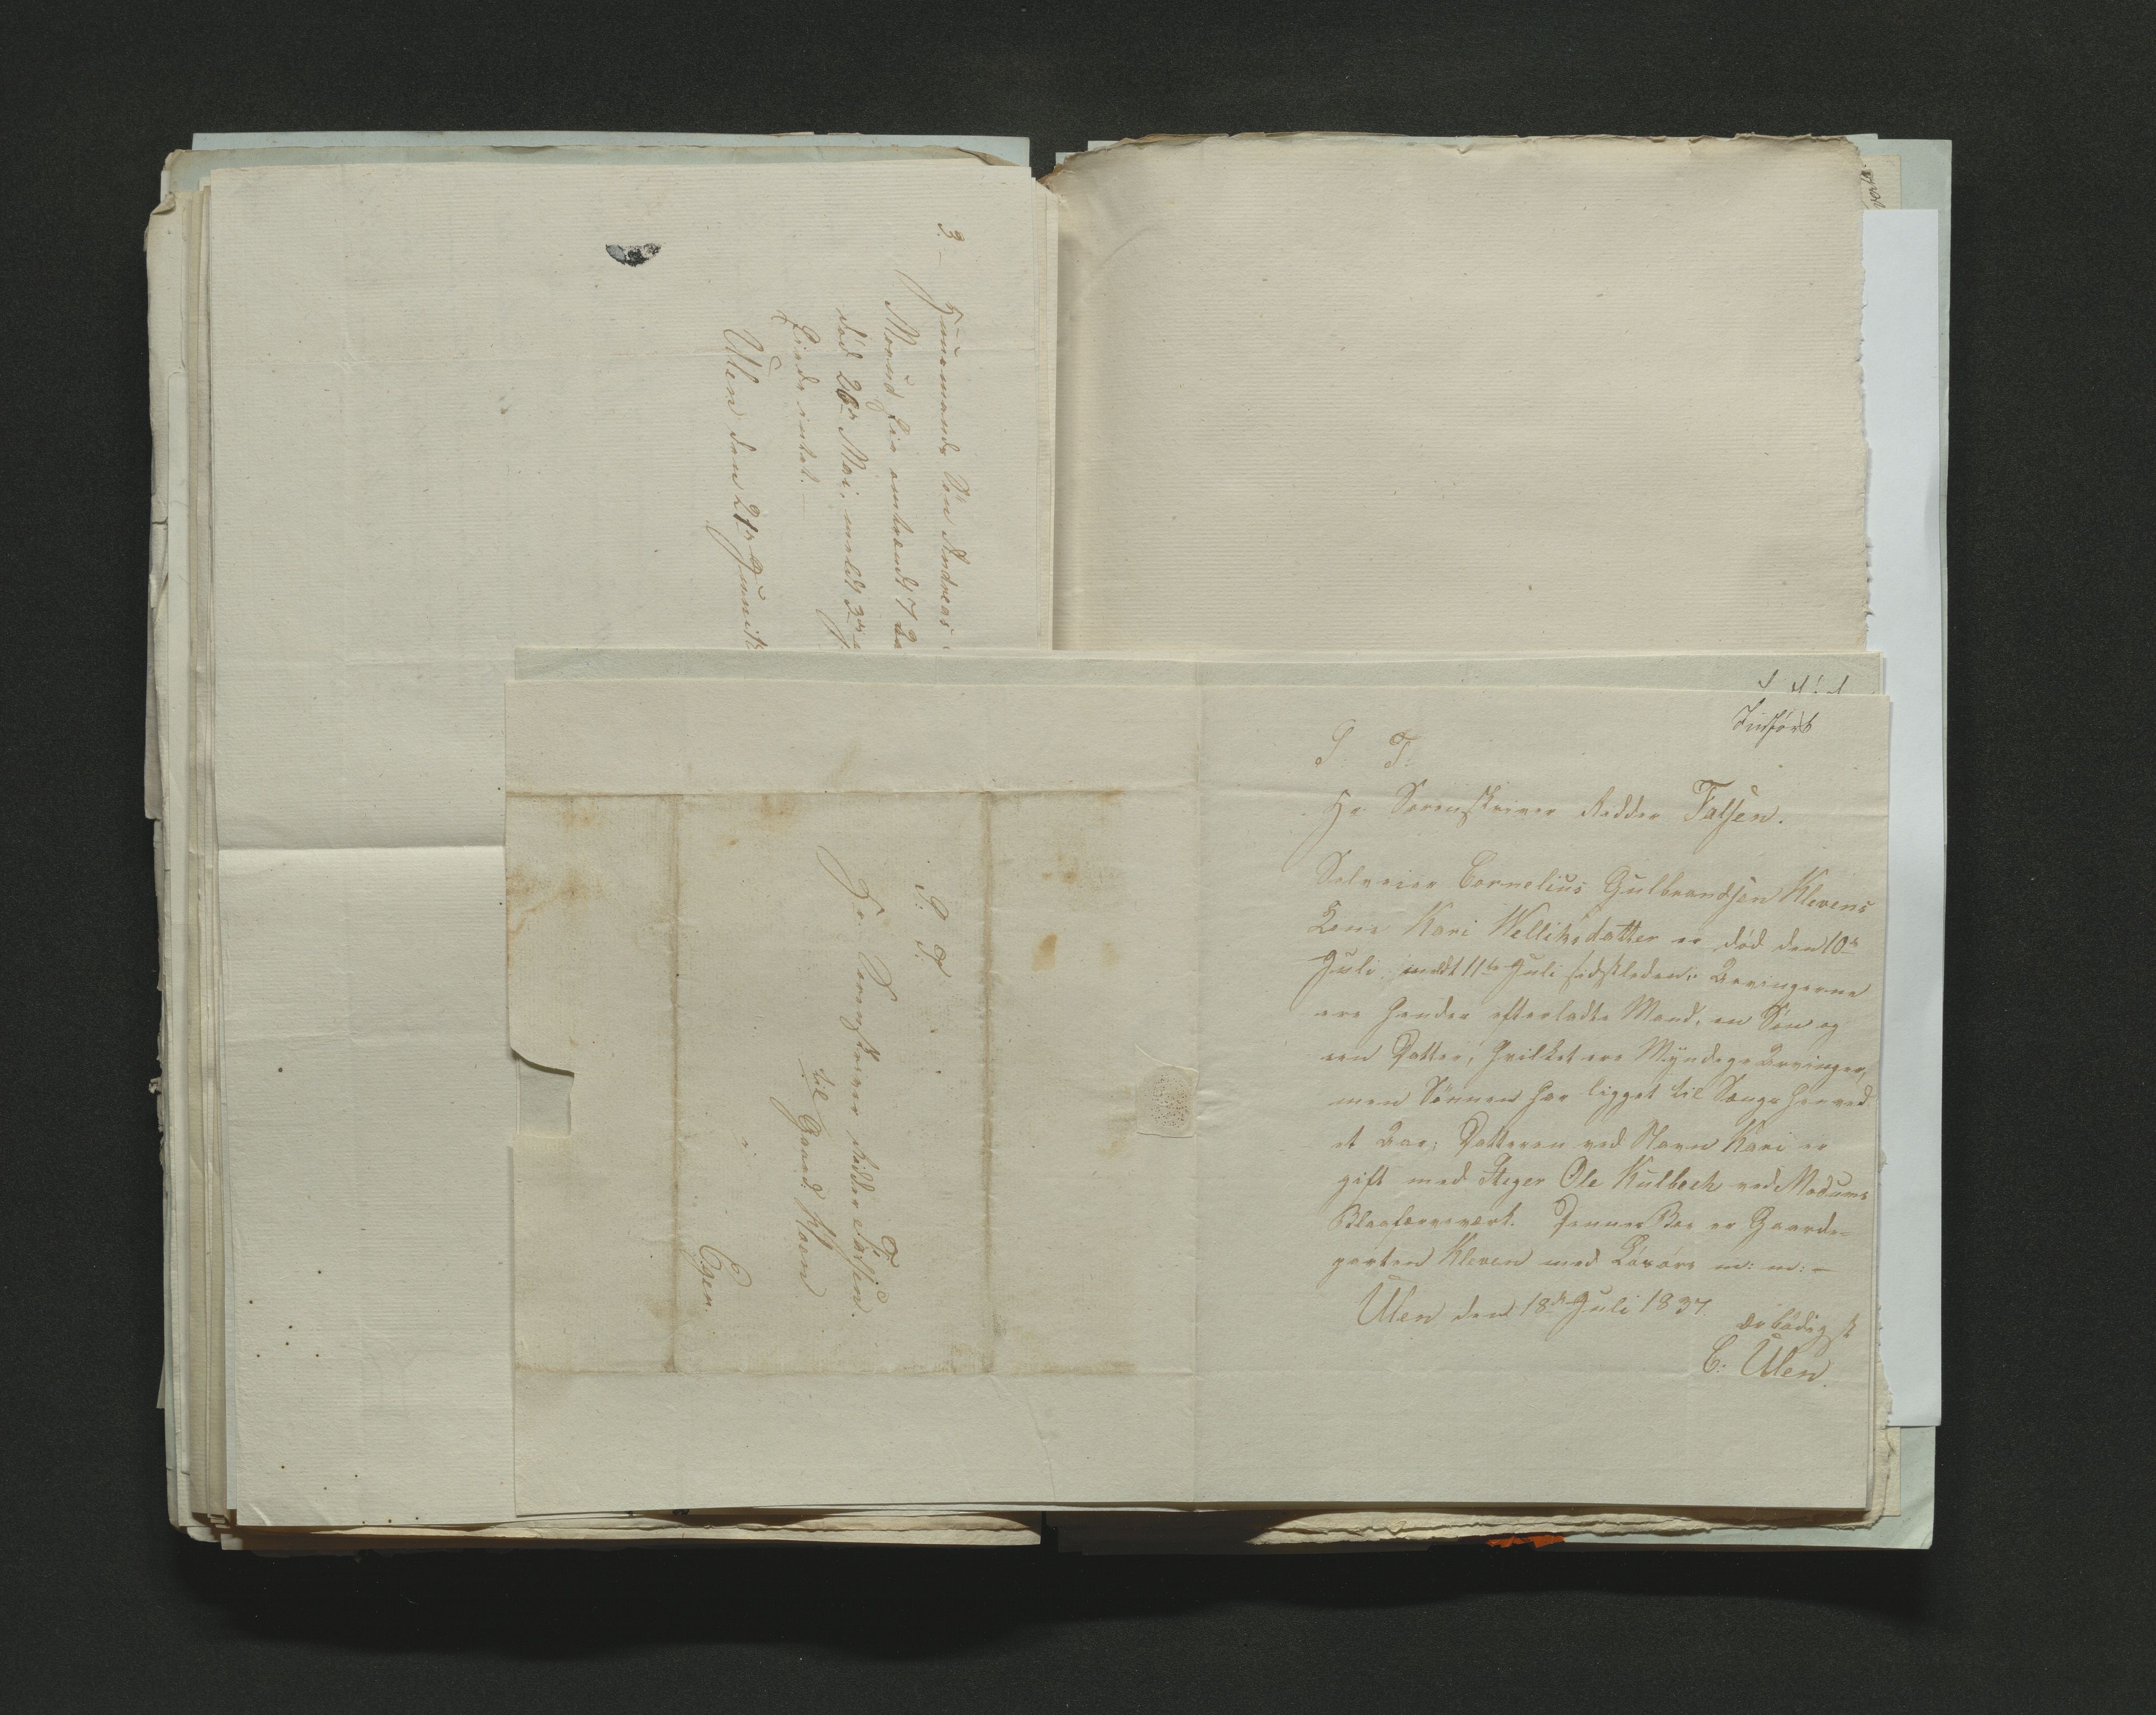 3.- Huusmands Søn Andreas
død 26de Mai, meldt 3die
Eiede intet. —
Ulen den 21de Junii
S. T.
Hr. Sorenskriver Ridder Falsen.
til Gaard: Moen
i
Eger.
Indført
S. T.
Hr. Sorenskriver Ridder Falsen.
Selveier Cornelius Gulbrandsen Klevens
Kone Kari Velliksdatter er død den 10de
Juli, meldt 11te Juli sidstleden; Arvingerne
ere hendes efterladte Mand, en Søn og
een Datter, hvilket ere Myndige Arvinger,
men Sønnen har ligget til Sengs henved
et Aar; Datteren ved Navn Kari er
gift med Steger Ole Kulbeck ved Modums
Blaafarveværk. Dennes Boe er Gaarde-
parten Kleven med Løsøre m: m: —
Ulen den 18de Juli 1837.
ærbødigst
C: Ulen.